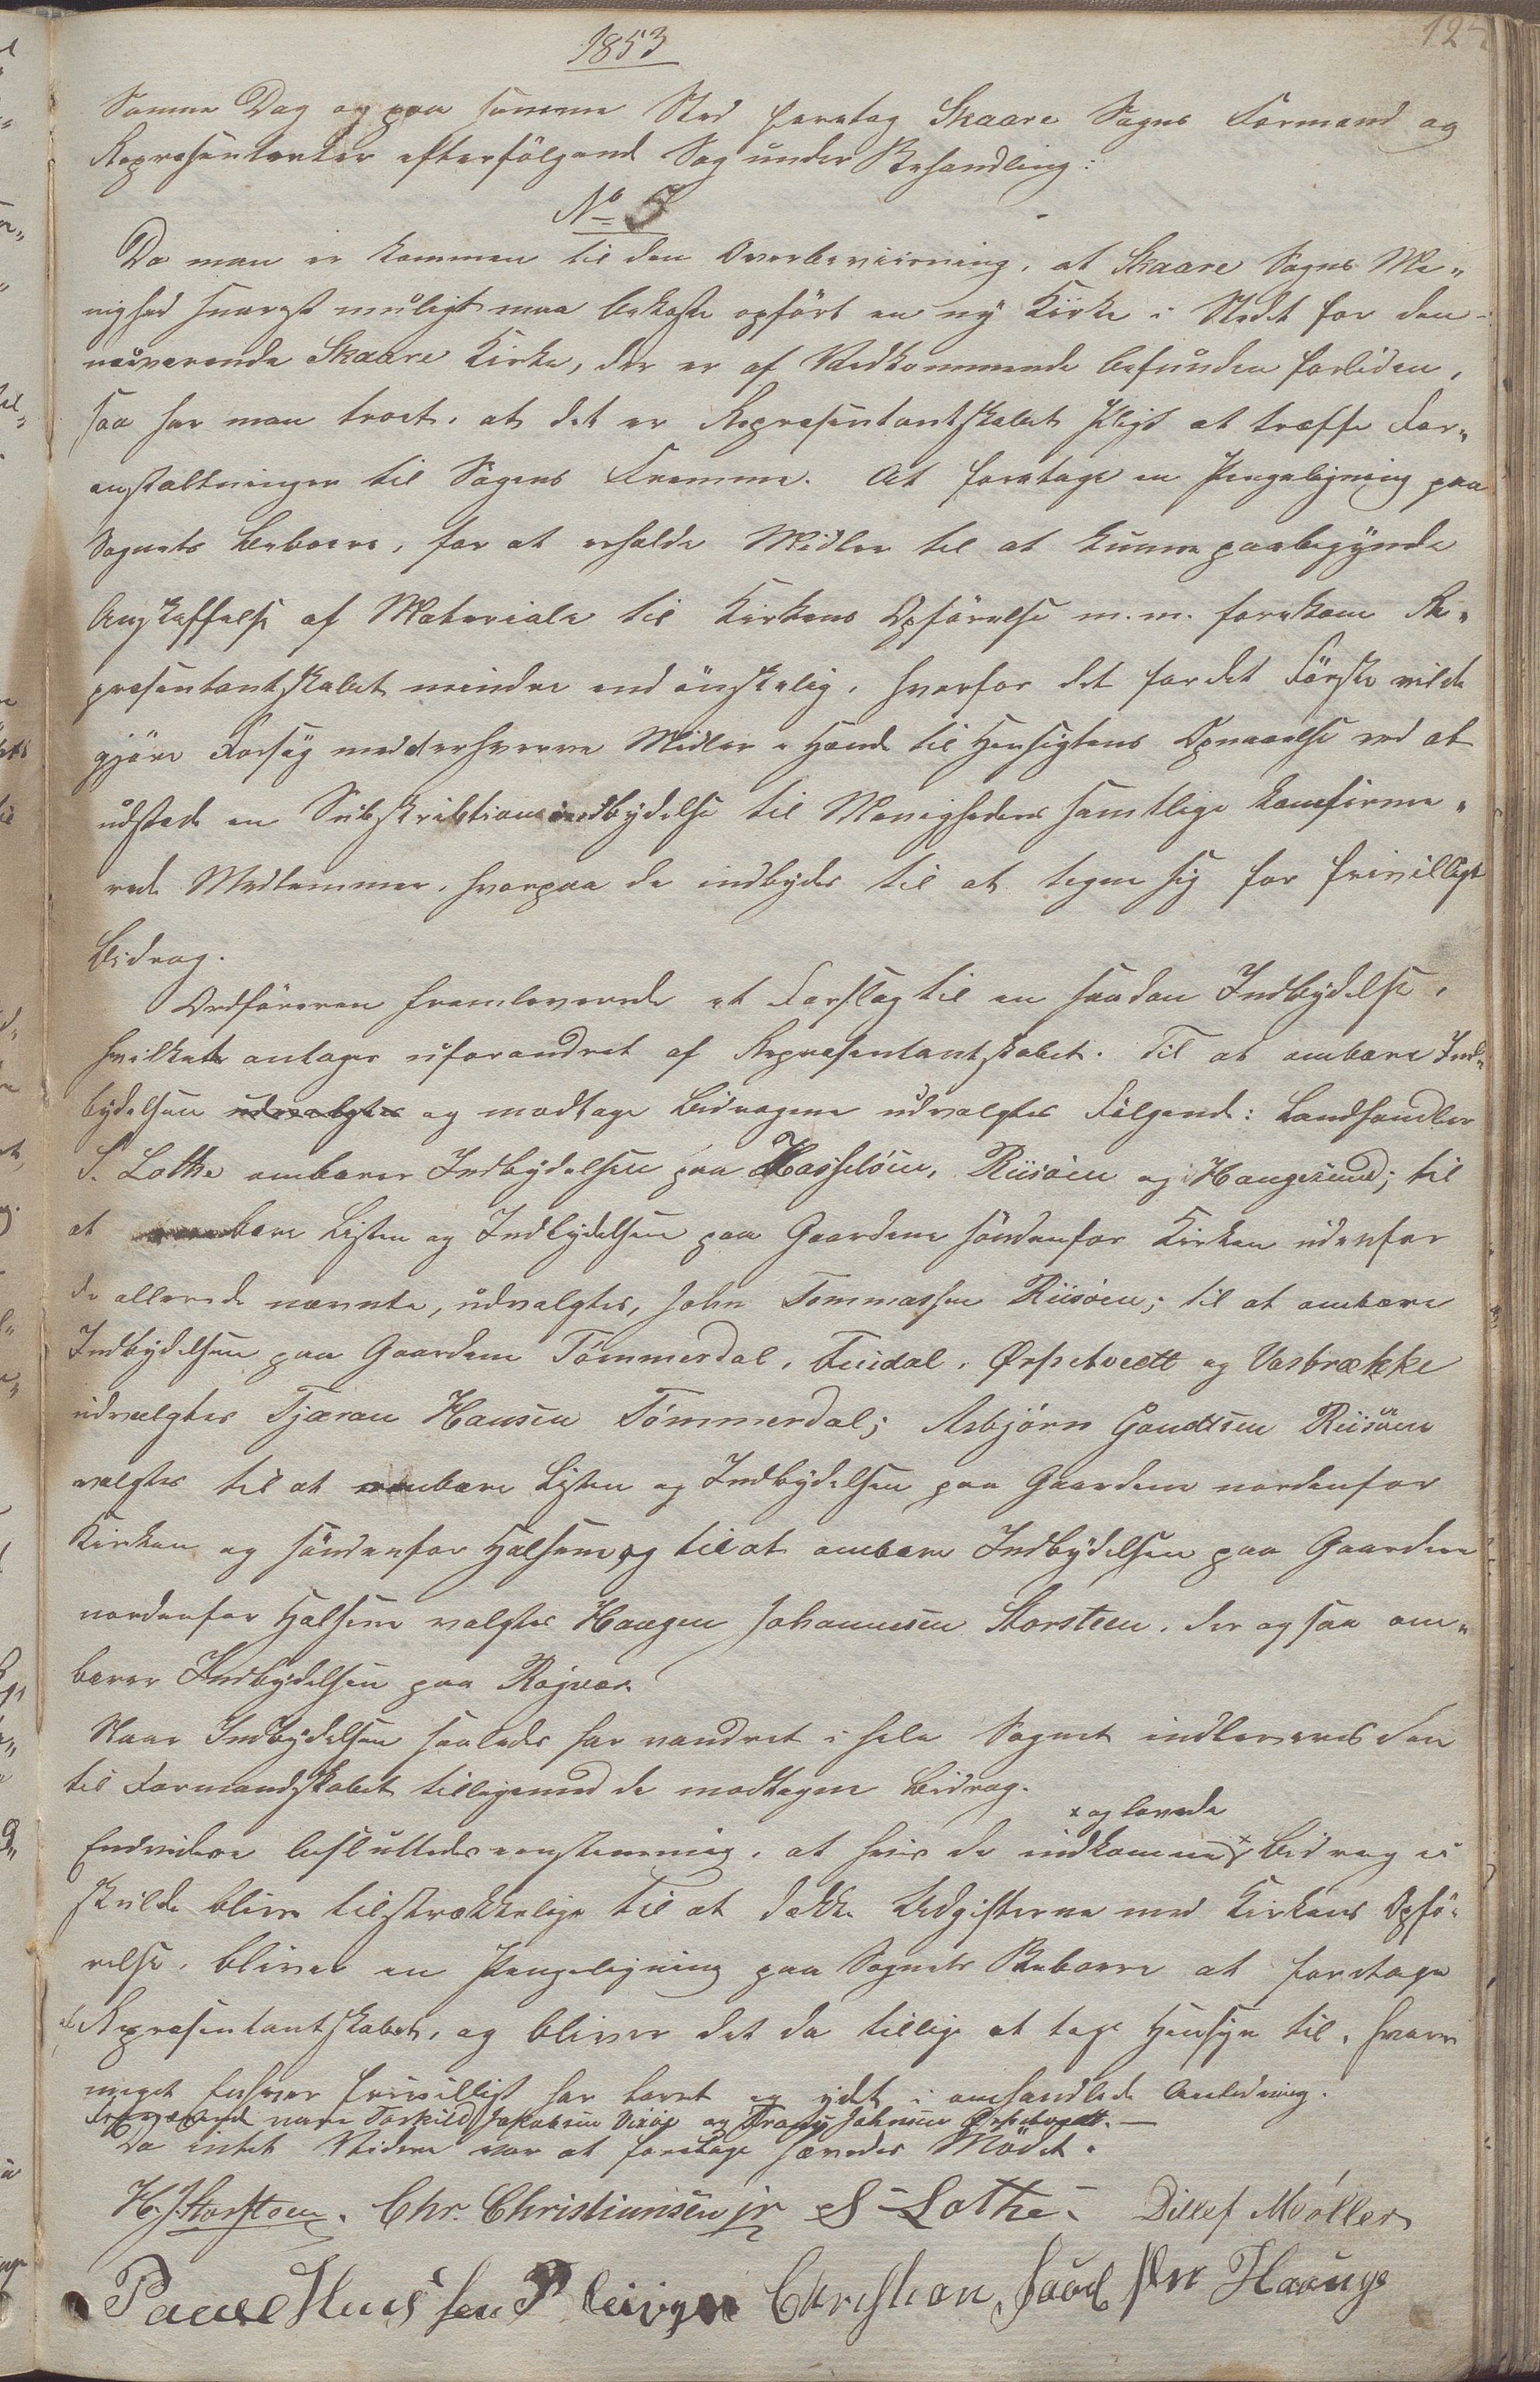 1853
Samme Dag og paa samme Sted foretog Skaare Sogns Formænd og
Repræsentanter efterfölgende Sag under Behandling:
No 5
Da man er kommen til den Overbeviisning, at Skaare Sogns Me„
nighed snarest muligt maa bekoste opfört en ny Kirke i Stedet for den
nuværende Skaare Kirke, der er af Vedkommende befunden forliden,
saa har man troet, at det er Repræsentantskabets Pligt at træffe For„
anstaltninger til Sagens Fremme. At foretage en Pengeligning paa
Sognets Beboere, for at erholde Midler til at kunne paabegynde
Anskaffelse af Materiale til Kirkens Opförelse m.m. forekom Re„
præsentantskabet mindre end önskelig, hvorfor det for det Förste vilde
gjöre Forsög med at erhverve Midler i Hænde til Hensigtens Opnaaelse ved at
udstede en Subskribtionsindbydelse til Menighedens samtlige konfirme„
rede Medlemmer, hvorpaa de indbydes til at tegne sig for frivilligt
Bidrag.
Ordföreren fremleverede et Forslag til en saadan Indbydelse,
hvilket antages uforandret af Repræsentantskabet. Til at ombære Ind„
bydelsen udvalgtes og modtage Bidragene udvalgtes Fölgende: Landhandler
S. Lothe ombærer Indbydelsen paa Hasselöen, Riisöen og Haugesund; til
at ombære Listen og Indbydelsen paa Gaardene söndenfor Kirken udenfor
de allerede nævnte, udvalgtes, John Tommassen Riisöen; til at ombære
Indbydelsen paa Gaardene Tömmerdal, Fuidal, Ørpetvedt og Vasbrække
udvalgtes Tjæran Hansen Tömmerdal; Asbjörn Gaudtsen Riisöen
valgtes til at ombære Listen og Indbydelsen paa Gaardene nordenfor
Kirken og söndenfor Halsene, og til at ombære Indbydelsen paa Gaardene
nordenfor Halsene valgtes Haagen Johannesen Storsteen, der ogsaa om„
bærer Indbydelsen paa Røjvær.
Naar Indbydelsen saaledes har vandret i hele Sognet indleveres den
til Formandskabet tilligemed de modtagne Bidrag.
x og lovede
Endvidere besluttedes eenstemmig, at hvis de indkomne x Bidrag ei
skulde blive tilstrækkelige til at dække Udgifterne med Kirkens Opfö„
relse, bliver en Pengeligning paa Sognets Beboere at foretage
af Repræsentantskabet, og bliver det da tillige at tage Hensyn til, hvor
meget Enhver frivilligt har lovet og ydet i omhandlede Anledning.
Fraværende vare Torkild Jakobsen og Johnsen Ørpetvedt.—
Da intet Videre var at foretage hævedes Mödet.
H. J. Storsteen. Chr. Christiansen jr S. Lothe. Dillef Møller
Paul Hansen Christian Haaugs